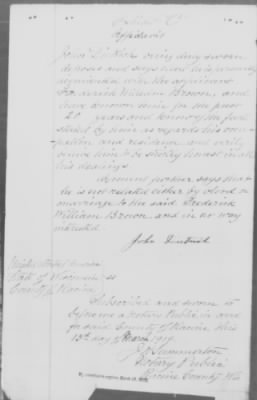 Affidavit
John being duly sworn
deposes and says that he is personally
acquainted with the applicant
Frederick William Brown, and
have known him for the past
20 years and know the facts
stated by him as regards his occu-
pation and residence and verily
him to be strictly honest in all
his dealings.
Deponent further says that
he is not related either by blood or
marriage to the said Frederick
William Brown and in no way
interested.
John
United States of America
State of Wisconsin ss
County of Racine
Subscribed and sworn to
before me a Notary Public in and
for said County of Racine this
13th day of March 1917.
Notary Public
Racine County Wis
My commission expires March